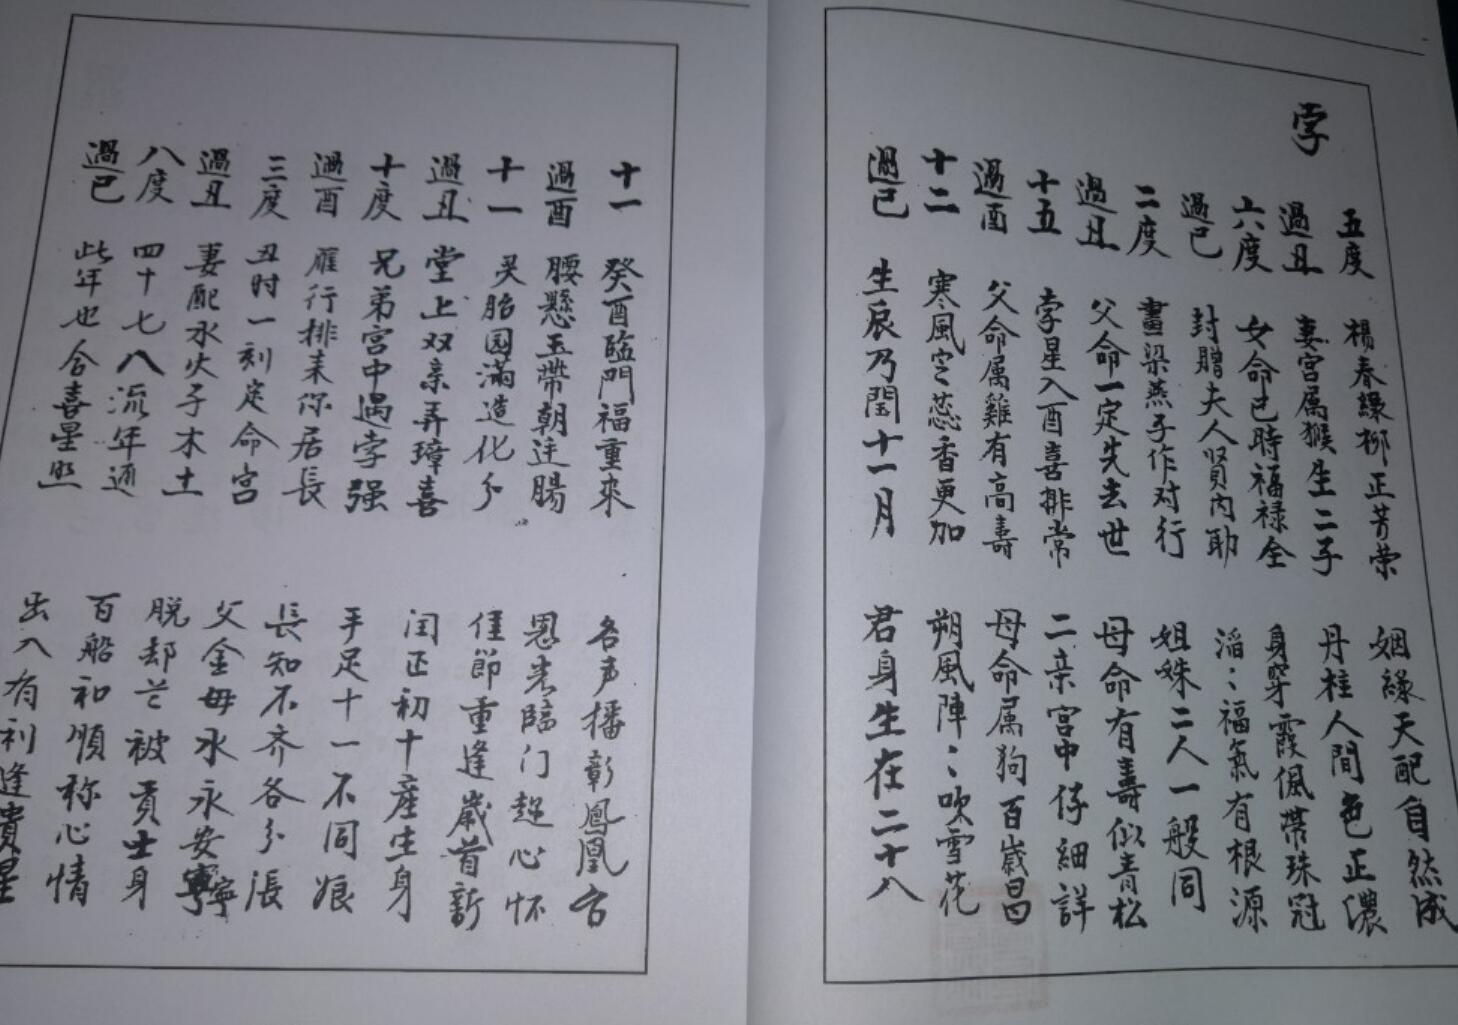 孛
五度 楊春緑柳正芳荣 姻緣天配自然成
過丑 妻宫属猴生二子 丹桂人間色正濃
六度 女命巳時福禄全 身穿霞佩帶珠冠
過巳 封贈夫人賢内助 滔滔福氣有根源
二度 畫梁燕子作对行 姐妹二人一般同
過丑 父命一定先去世 母命有壽似青松
十五 孛星入酉喜排常 二亲宫中仔細詳
過酉 父命属雞有高壽 母命属狗百歲昌
十二 寒風空蕊香更加 朔風陣陣吹雪花
過巳 生辰乃閏十一月 君身生在二十八
十一 癸酉臨門福重來 名声播彰鳳凰台
過酉 腰懸玉帶朝廷腸 恩光臨门趂心怀
十一 灵胎园滿造化分 佳節重逢歲首新
過丑 堂上双亲弄璋喜 闰正初十產生身
十度 兄弟宫中遇孛强 手足十一不同娘
過酉 雁行排来你居長 長知不齐各分張
三度 丑时一刻定命宫 父金母水永安寧
過丑 妻配水火子木土 脱却芒被贡士身
八度 四十七八流年通 百船和順称心情
過巳 此年也合喜星照 出入有利逢貴星